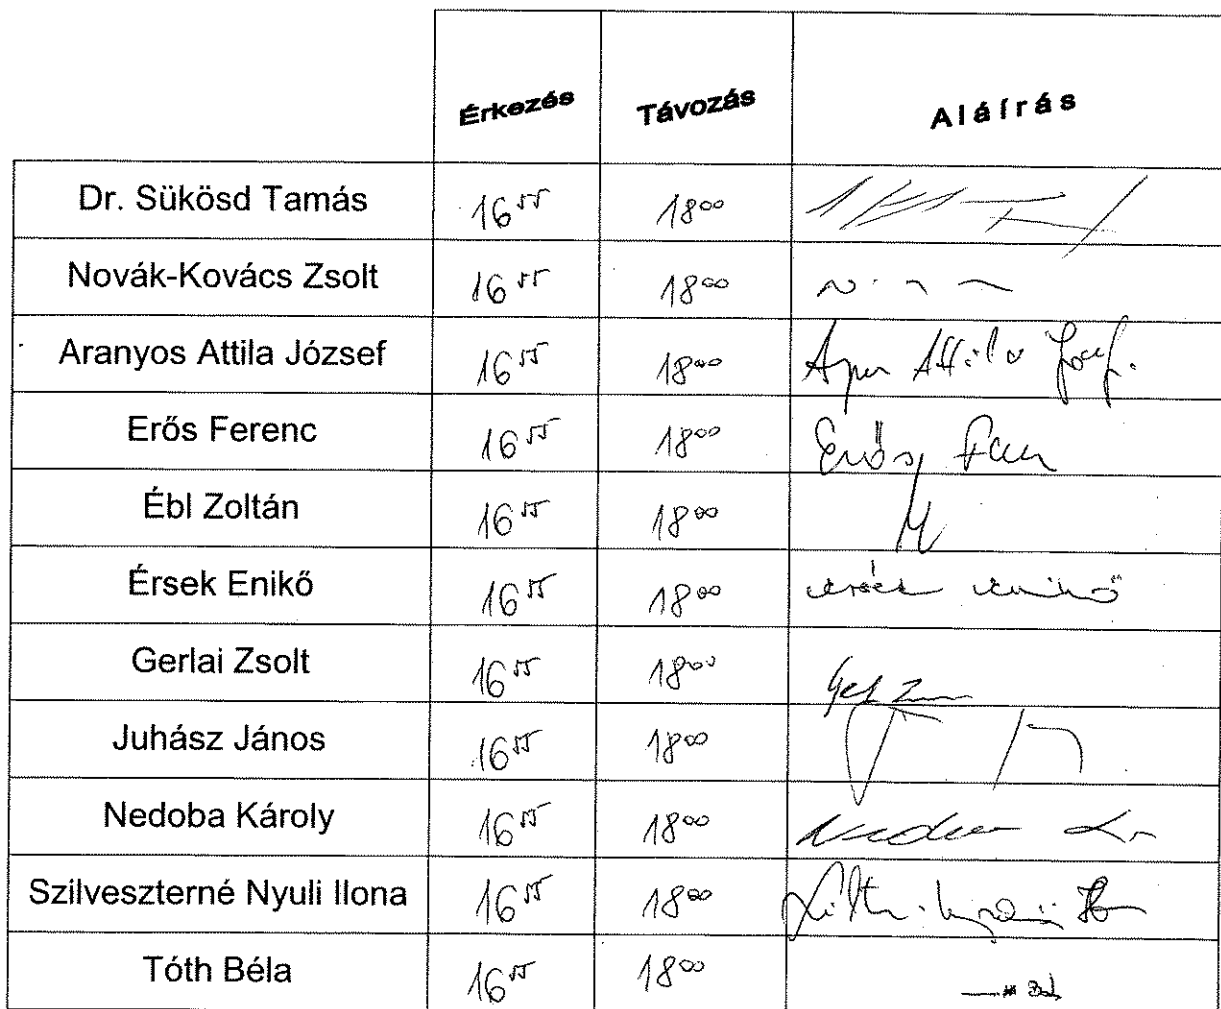 Érkezés Távozás Aláírás
Dr. Sükösd Tamás 16⁵⁵ 18⁰⁰
Novák-Kovács Zsolt 16⁵⁵ 18⁰⁰
Aranyos Attila József 16⁵⁵ 18⁰⁰ Attila
Erős Ferenc 16⁵⁵ 18⁰⁰ Erős
Ébl Zoltán 16⁵⁵ 18⁰⁰
Érsek Enikő 16⁵⁵ 18⁰⁰ Enikő
Gerlai Zsolt 16⁵⁵ 18⁰⁰
Juhász János 16⁵⁵ 18⁰⁰
Nedoba Károly 16⁵⁵ 18⁰⁰
Szilveszterné Nyuli Ilona 16⁵⁵ 18⁰⁰
Tóth Béla 16⁵⁵ 18⁰⁰